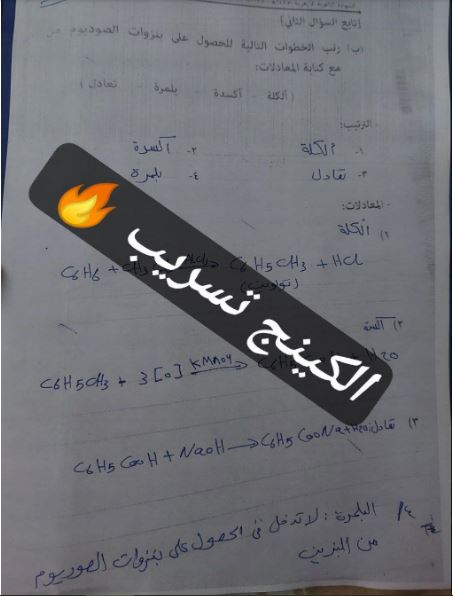 (تابع السؤال الثاني)
(ب) رتب الخطوات التالية للحصول على بنزوات الصوديوم من
مع كتابة المعادلات:
(ألكلة - أكسدة - بلمرة - تعادل)
- الترتيب:
١- ألكلة ٢- أكسدة
٣- تعادل ٤- بلمرة
- المعادلات:
١) ألكلة
C6H6 + CH3 C6H5CH3 + HCl
(تولوين)
٢) أكسدة
C6H5CH3 + 3[O] KMnO4 → C6H5 H2O
٣) تعادل
C6H5COOH + NaOH → C6H5COONa + H2O
٤/ البلمرة : لا تدخل في الحصول على بنزوات الصوديوم
من البنزين
الكينج تسريب 🔥